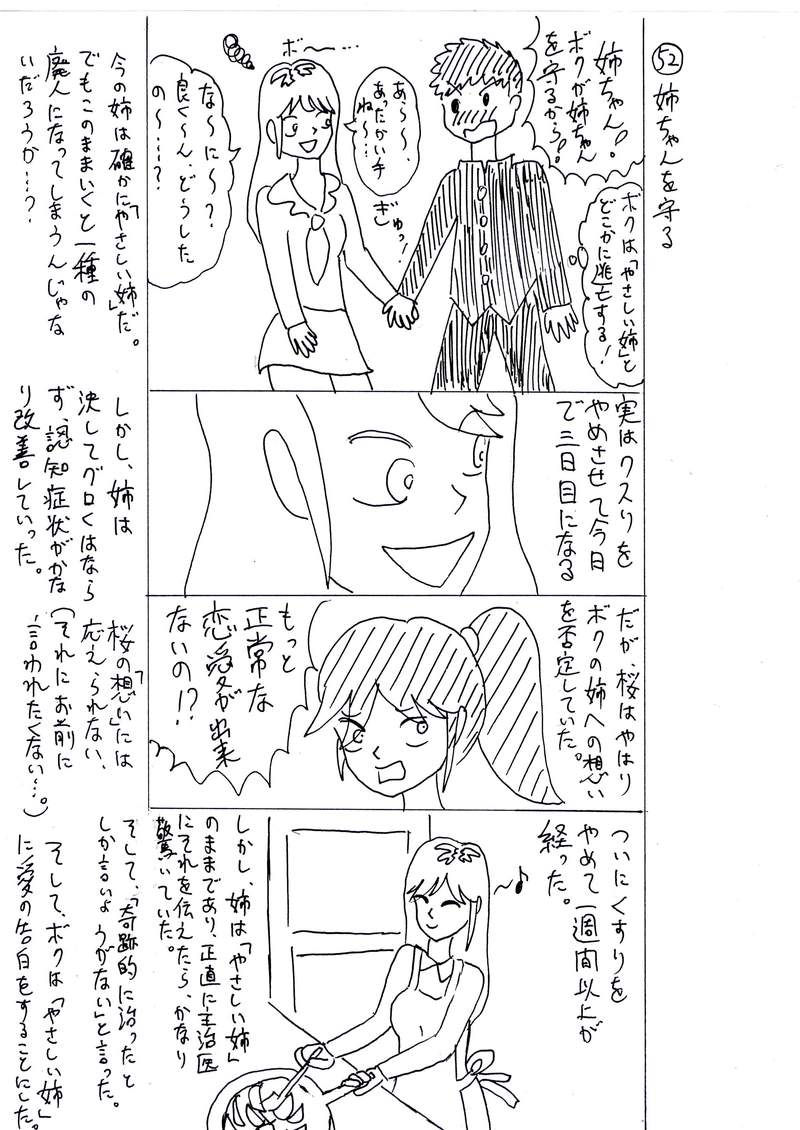 52 姉ちゃんを守る
姉ちゃん!
ボクが姉ちゃん
を守るから!
ボクは「やさしい姉」と
どこかに逃亡する!
ぎゅっ!
あ、〜〜、
あったかい手
ね〜…
ボ〜…
な〜に〜?
良く〜ん、どうした
の〜…?
今の姉は確かに「やさしい姉」だ。
でもこのままいくと一種の
廃人になってしまうんじゃな
いだろうか…?
実はクスリを
やめさせて今日
で三日目になる
しかし、姉は
決してグロくはなら
ず、認知症状がかな
り改善していった。
だが、桜はやはり
ボクの姉への想い
を否定していた。
もっと
正常な
恋愛が出来
ないの!?
桜の「想い」には
応えられない、
(それにお前に
言われたくない…。)
ついにくすりを
やめて一週間以上が
経った。
〜♪
しかし、姉は「やさしい姉」
のままであり、正直に主治医
にそれを伝えたら、かなり
驚いていた。
そして、「奇跡的に治ったと
しか言いようがない」と言った。
そして、ボクは「やさしい姉」
に愛の告白をすることにした。